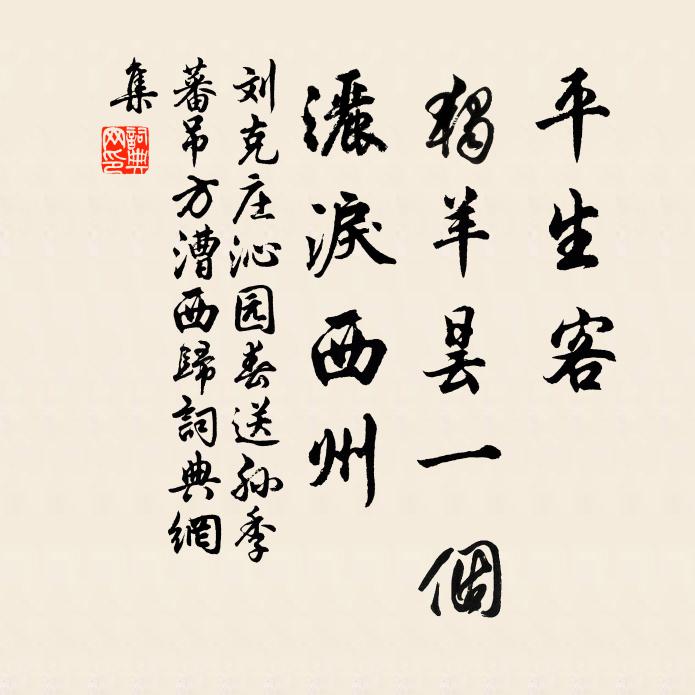 平生客
獨羊曇一個
灑淚西州
刘克庄沁园春送孙季
蕃吊方漕西歸詞典網
集
詞典網印